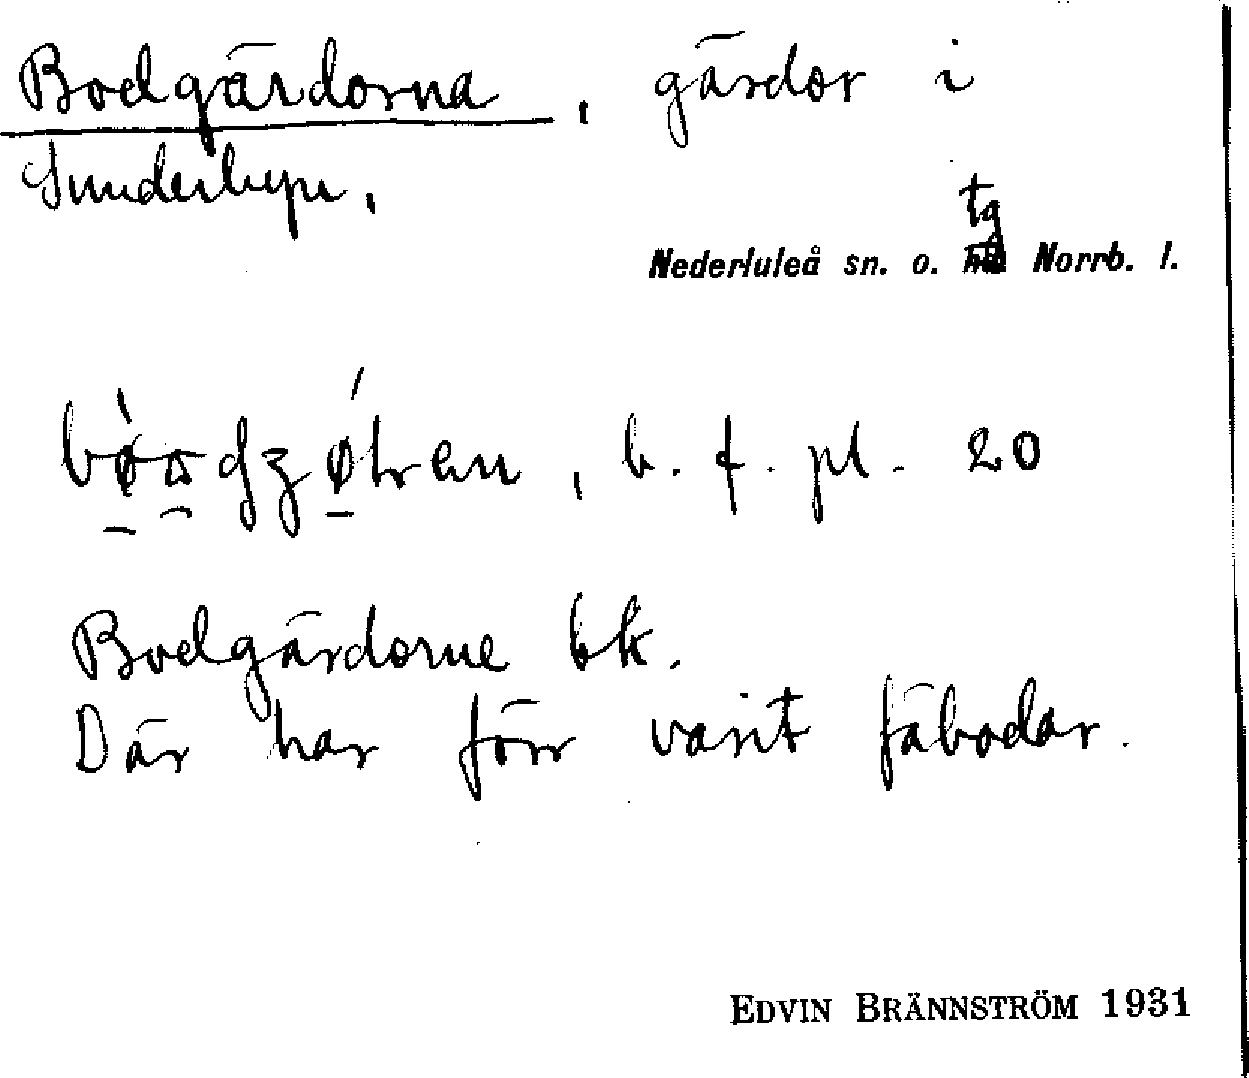 Bodgärdorna, gärdor i
Sunderbyn.
tg
Nederluleå sn. o. Norrb. l.
b. f. pl. 20
Bodgärdorne bk.
Där har förr varit fäbodar.
EDVIN BRÄNNSTRÖM 1931